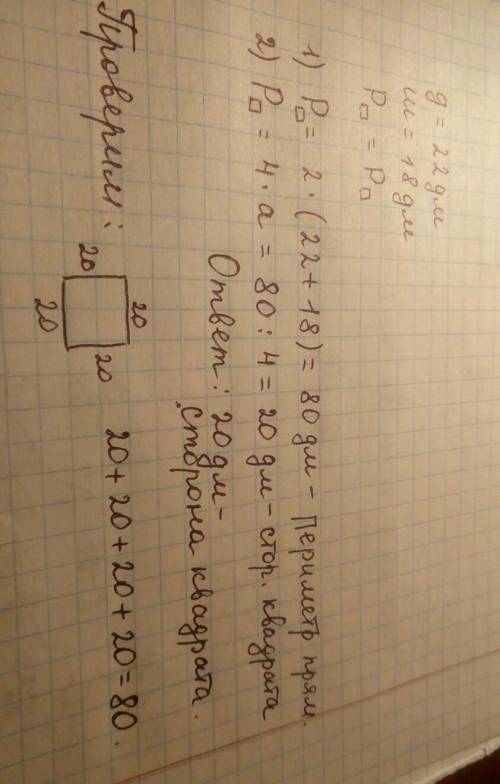 д = 22 дм
ш = 18 дм
P▭ = P□
1) P▭ = 2 · (22 + 18) = 80 дм - Периметр прям.
2) P□ = 4 · а = 80 : 4 = 20 дм - стор. квадрата
Ответ: 20 дм -
сторона квадрата.
Проверим:
20
20
20
20
20 + 20 + 20 + 20 = 80.